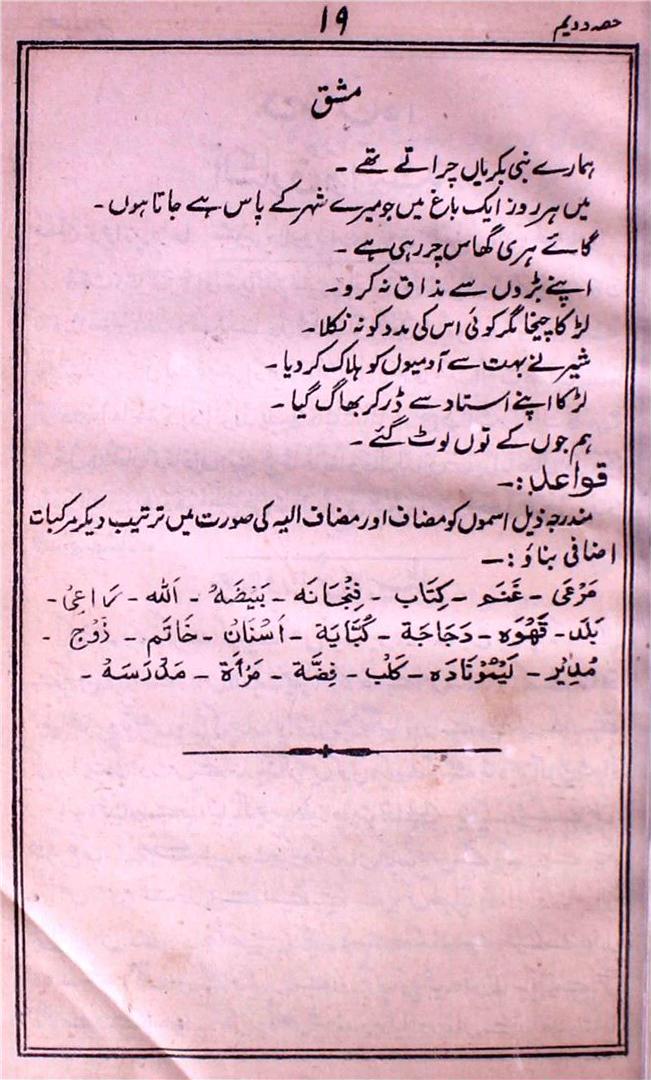 حصہ دویم
۱۹
مشق
ہمارے نبی بکریاں چراتے تھے ۔
میں ہر روز ایک باغ میں جو میرے شہر کے پاس ہے جاتا ہوں ۔
گائے ہری گھاس چر رہی ہے ۔
اپنے بڑوں سے مذاق نہ کرو ۔
لڑکا چیخا مگر کوئی اس کی مدد کو نہ نکلا ۔
شیر نے بہت سے آدمیوں کو ہلاک کر دیا ۔
لڑکا اپنے استاد سے ڈر کر بھاگ گیا ۔
ہم جوں کے توں لوٹ گئے ۔
قواعد :۔
مندرجہ ذیل اسموں کو مضاف اور مضاف الیہ کی صورت میں ترتیب دیکر مرکبات
اضافی بناؤ :۔
مَرْعَی ۔ غَنَم ۔ کِتَاب ۔ فِنْجَانَہ ۔ بَیْضَہُ ۔ اَللہ ۔ رَاعِیُ ۔
بَلَد ۔ قَهْوَه ۔ دَجَاجَة ۔ کُبَّایَة ۔ اَسْنَانُ ۔ خَاتَم ۔ ذَوْج ۔
مُدِیْر ۔ لَیْمُوْنَادَه ۔ کَلْب ۔ فِضَّة ۔ مَرْأة ۔ مَدْرَسَهُ ۔